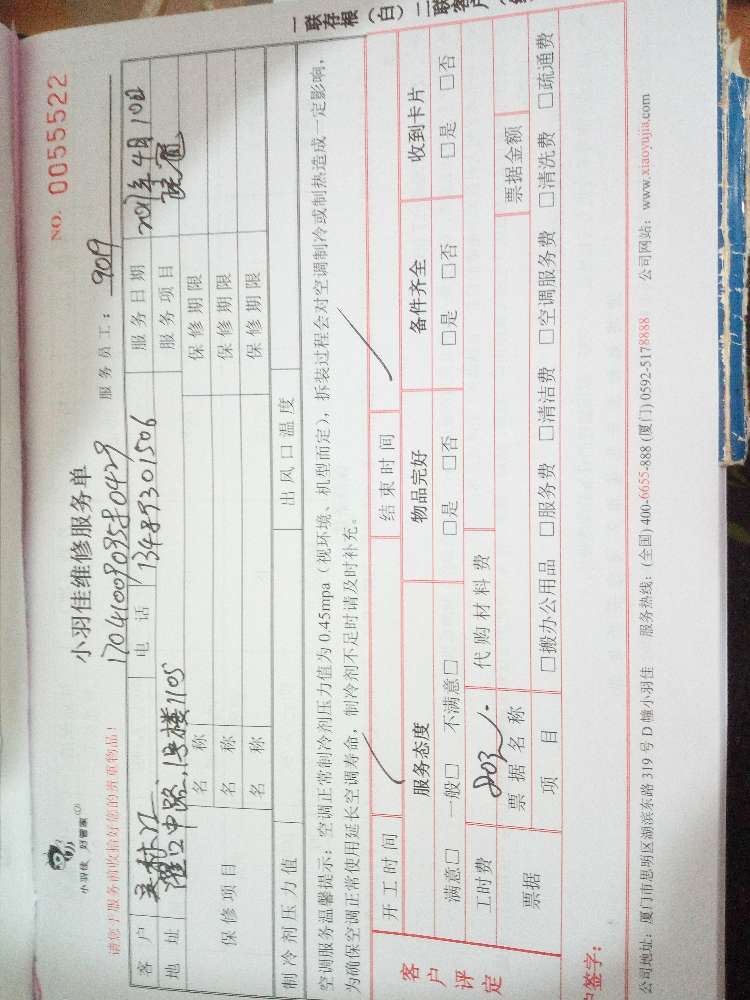 一联存根（白）二联客户
小羽佳 好管家
小羽佳维修服务单
NO. 0055522
请您于服务前收拾好您的贵重物品！
17041009095580429
服务员工：909
客户 电话 13489301506 服务日期 2017年4月10日
地址 灌口中路,1号楼1105 服务项目
保修项目
名称 保修期限
名称 保修期限
名称 保修期限
制冷剂压力值 出风口温度
空调服务温馨提示：空调正常制冷剂压力值为0.45mpa（视环境、机型而定），拆装过程会对空调制冷或制热造成一定影响，
为确保空调正常使用延长空调寿命，制冷剂不足时请及时补充。
开工时间 结束时间
客户评定
服务态度 物品完好 备件齐全 收到卡片
满意□ 一般□ 不满意□ □是 □否 □是 □否 □是 □否
工时费 代购材料费
票据 票据名称 票据金额
项目 □搬办公用品 □服务费 □清洁费 □空调服务费 □清洗费 □疏通费
户签字：
公司地址：厦门市思明区湖滨东路319号D幢小羽佳 服务热线：(全国)400-6655-888 (厦门)0592-5178888 公司网站：www.xiaoyujia.com